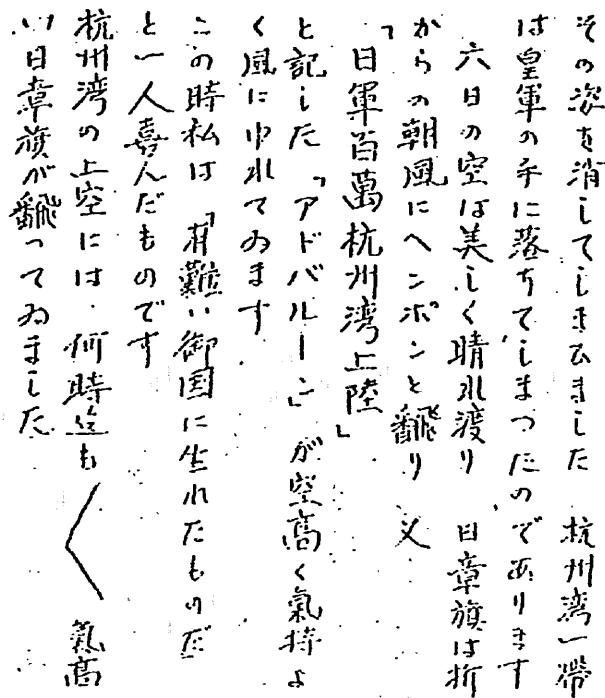 その姿を消してしまひました　杭州湾一帯
は皇軍の手に落ちてしまつたのであります
六日の空は美しく晴れ渡り　日章旗は折
からの朝風にヘンポンと翻り　又
「日軍百萬杭州湾上陸」
と記した「アドバルーン」が空高く氣持よ
く風にゆれてゐます
この時私は「有難い御国に生れたものだ
と一人喜んだものです
杭州湾の上空には、何時迄も〱氣高
い日章旗が翻つてゐました